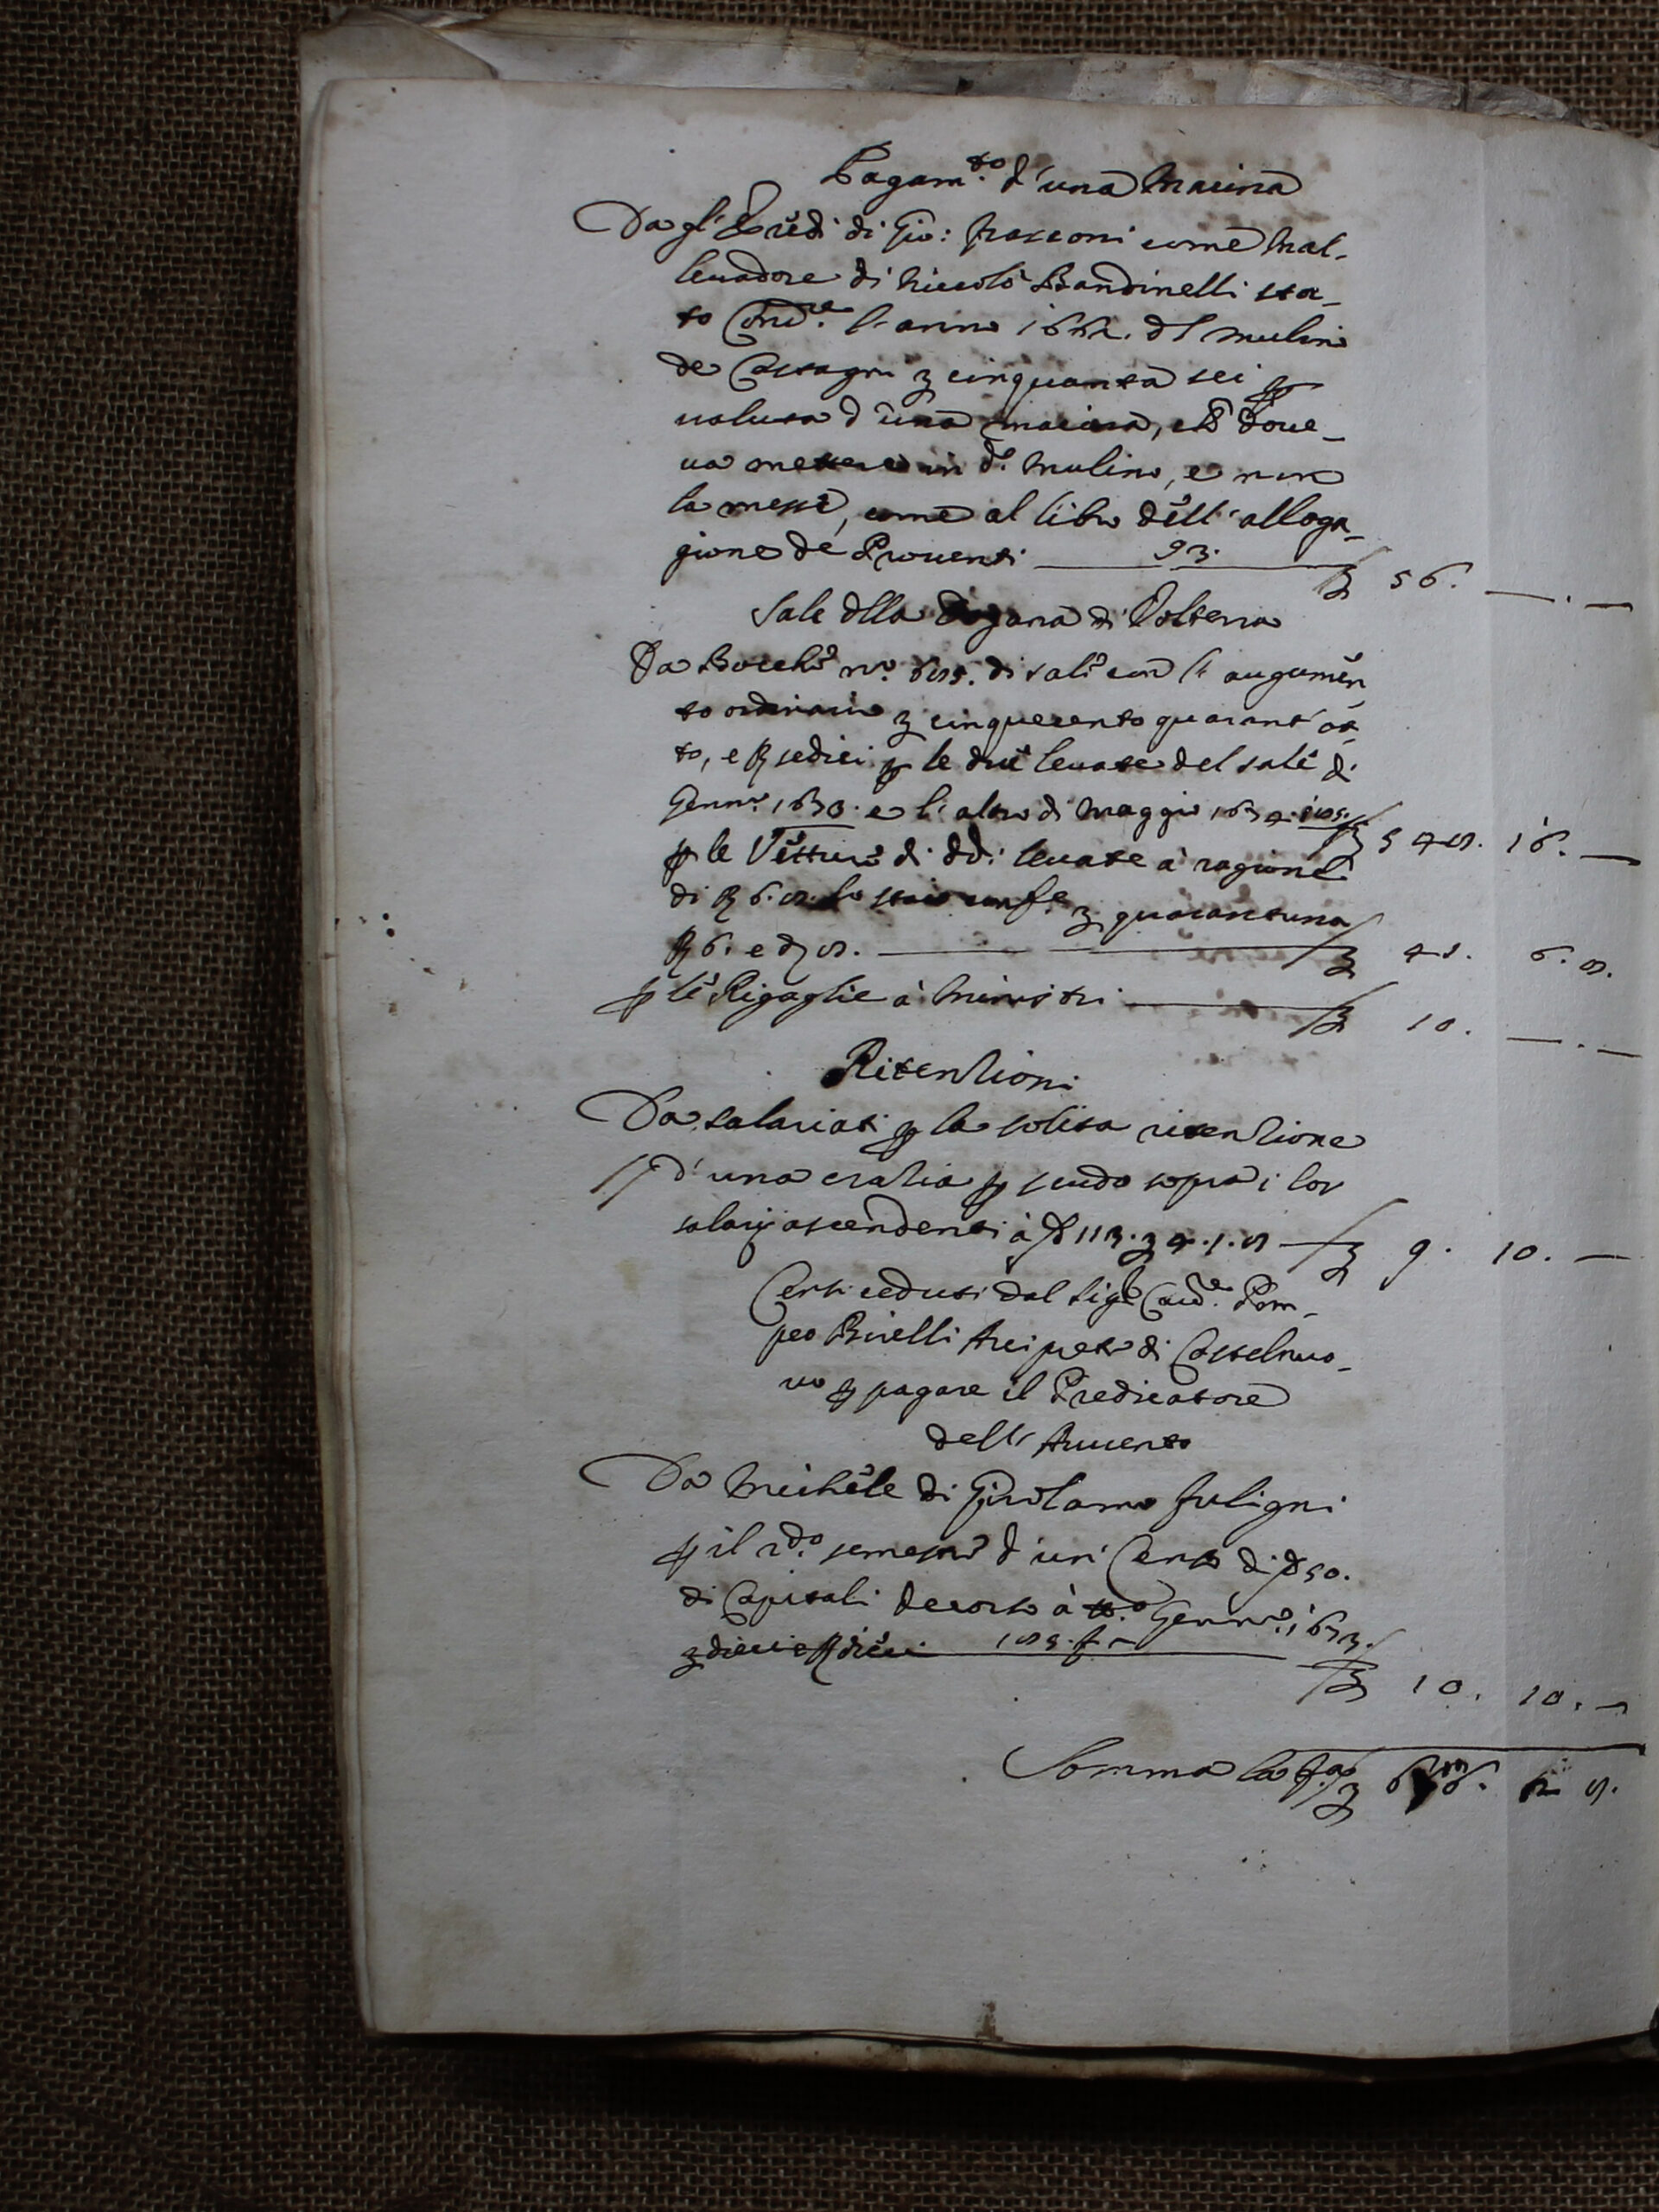 Pagam.to d'una Macina
Da gl'Eredi di Gio: frasconi come Mal-
levadore di Niccolò Bandinelli sta-
to Cond.re l'anno 1662. dl mulino
de Castagni £ cinquanta sei p
valuta d'una macina, che dove-
va mettere in d.o Mulino, e non
la messe, come al libro dell'alloga-
gione de Proventi 93. £ 56. — . —
Sale dlla Dogana di Volterra
Da Bocche n.o di sale con l'augumen
to ordinario £ cinquecento quarant'ot-
to, e ß sedici p le due levate del sale di
Genn.o 1673. e l'altro di Maggio 1674. £ 548. 16. —
p le Vetture di dd. levate à ragione
di ß 6. 8. lo staio £ quarantuna
ß 6. e d 8. £ 41. 6. 8.
p le Rigaglie a Ministri £ 10. — . —
Ritentioni
Da salariati p la solita ritentione
d'una cratia p scudo sopra i lor
salarij ascendenti à 113. £ 4. 1. 8 £ 9. 10. —
Censi ceduti dal Sig.r Cav.re Pom-
peo Birelli Arciprete di Castelnuo-
vo p pagare il Predicatore
dell'Avvento
Da Michele di Girolamo fuligni
p il 2.do semestre d'un Censo di 50.
di Capitali decorso à Genn.o 1673.
£ dieci e ß dieci £ 10. 10. —
Somma la f.a £